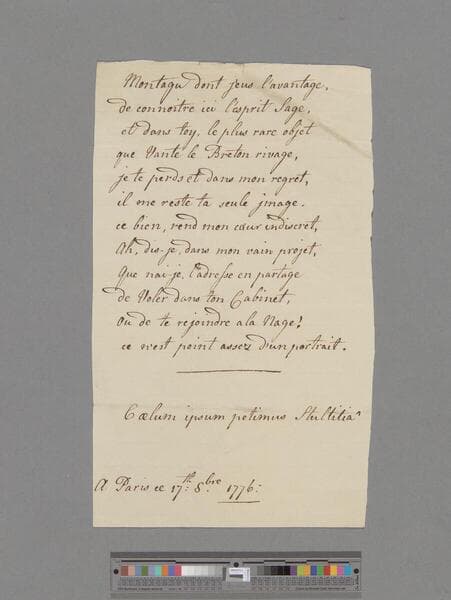 Montagu dont j'eus l'avantage,
de connoitre ici l'esprit Sage,
et dans toy, le plus rare objet
que Vante le Breton rivage,
je te perds et dans mon regret,
il me reste ta seule jmage.
ce bien, rend mon cœur indiscret,
Ah, dis-je, dans mon vain projet,
que nai-je, l'adresse en partage
de Voler dans ton Cabinet,
ou de te rejoindre a la Nage!
ce n'est point assez d'un portrait.
Cœlum ipsum petimus Stultitia
A Paris ce 17th 8bre 1776: